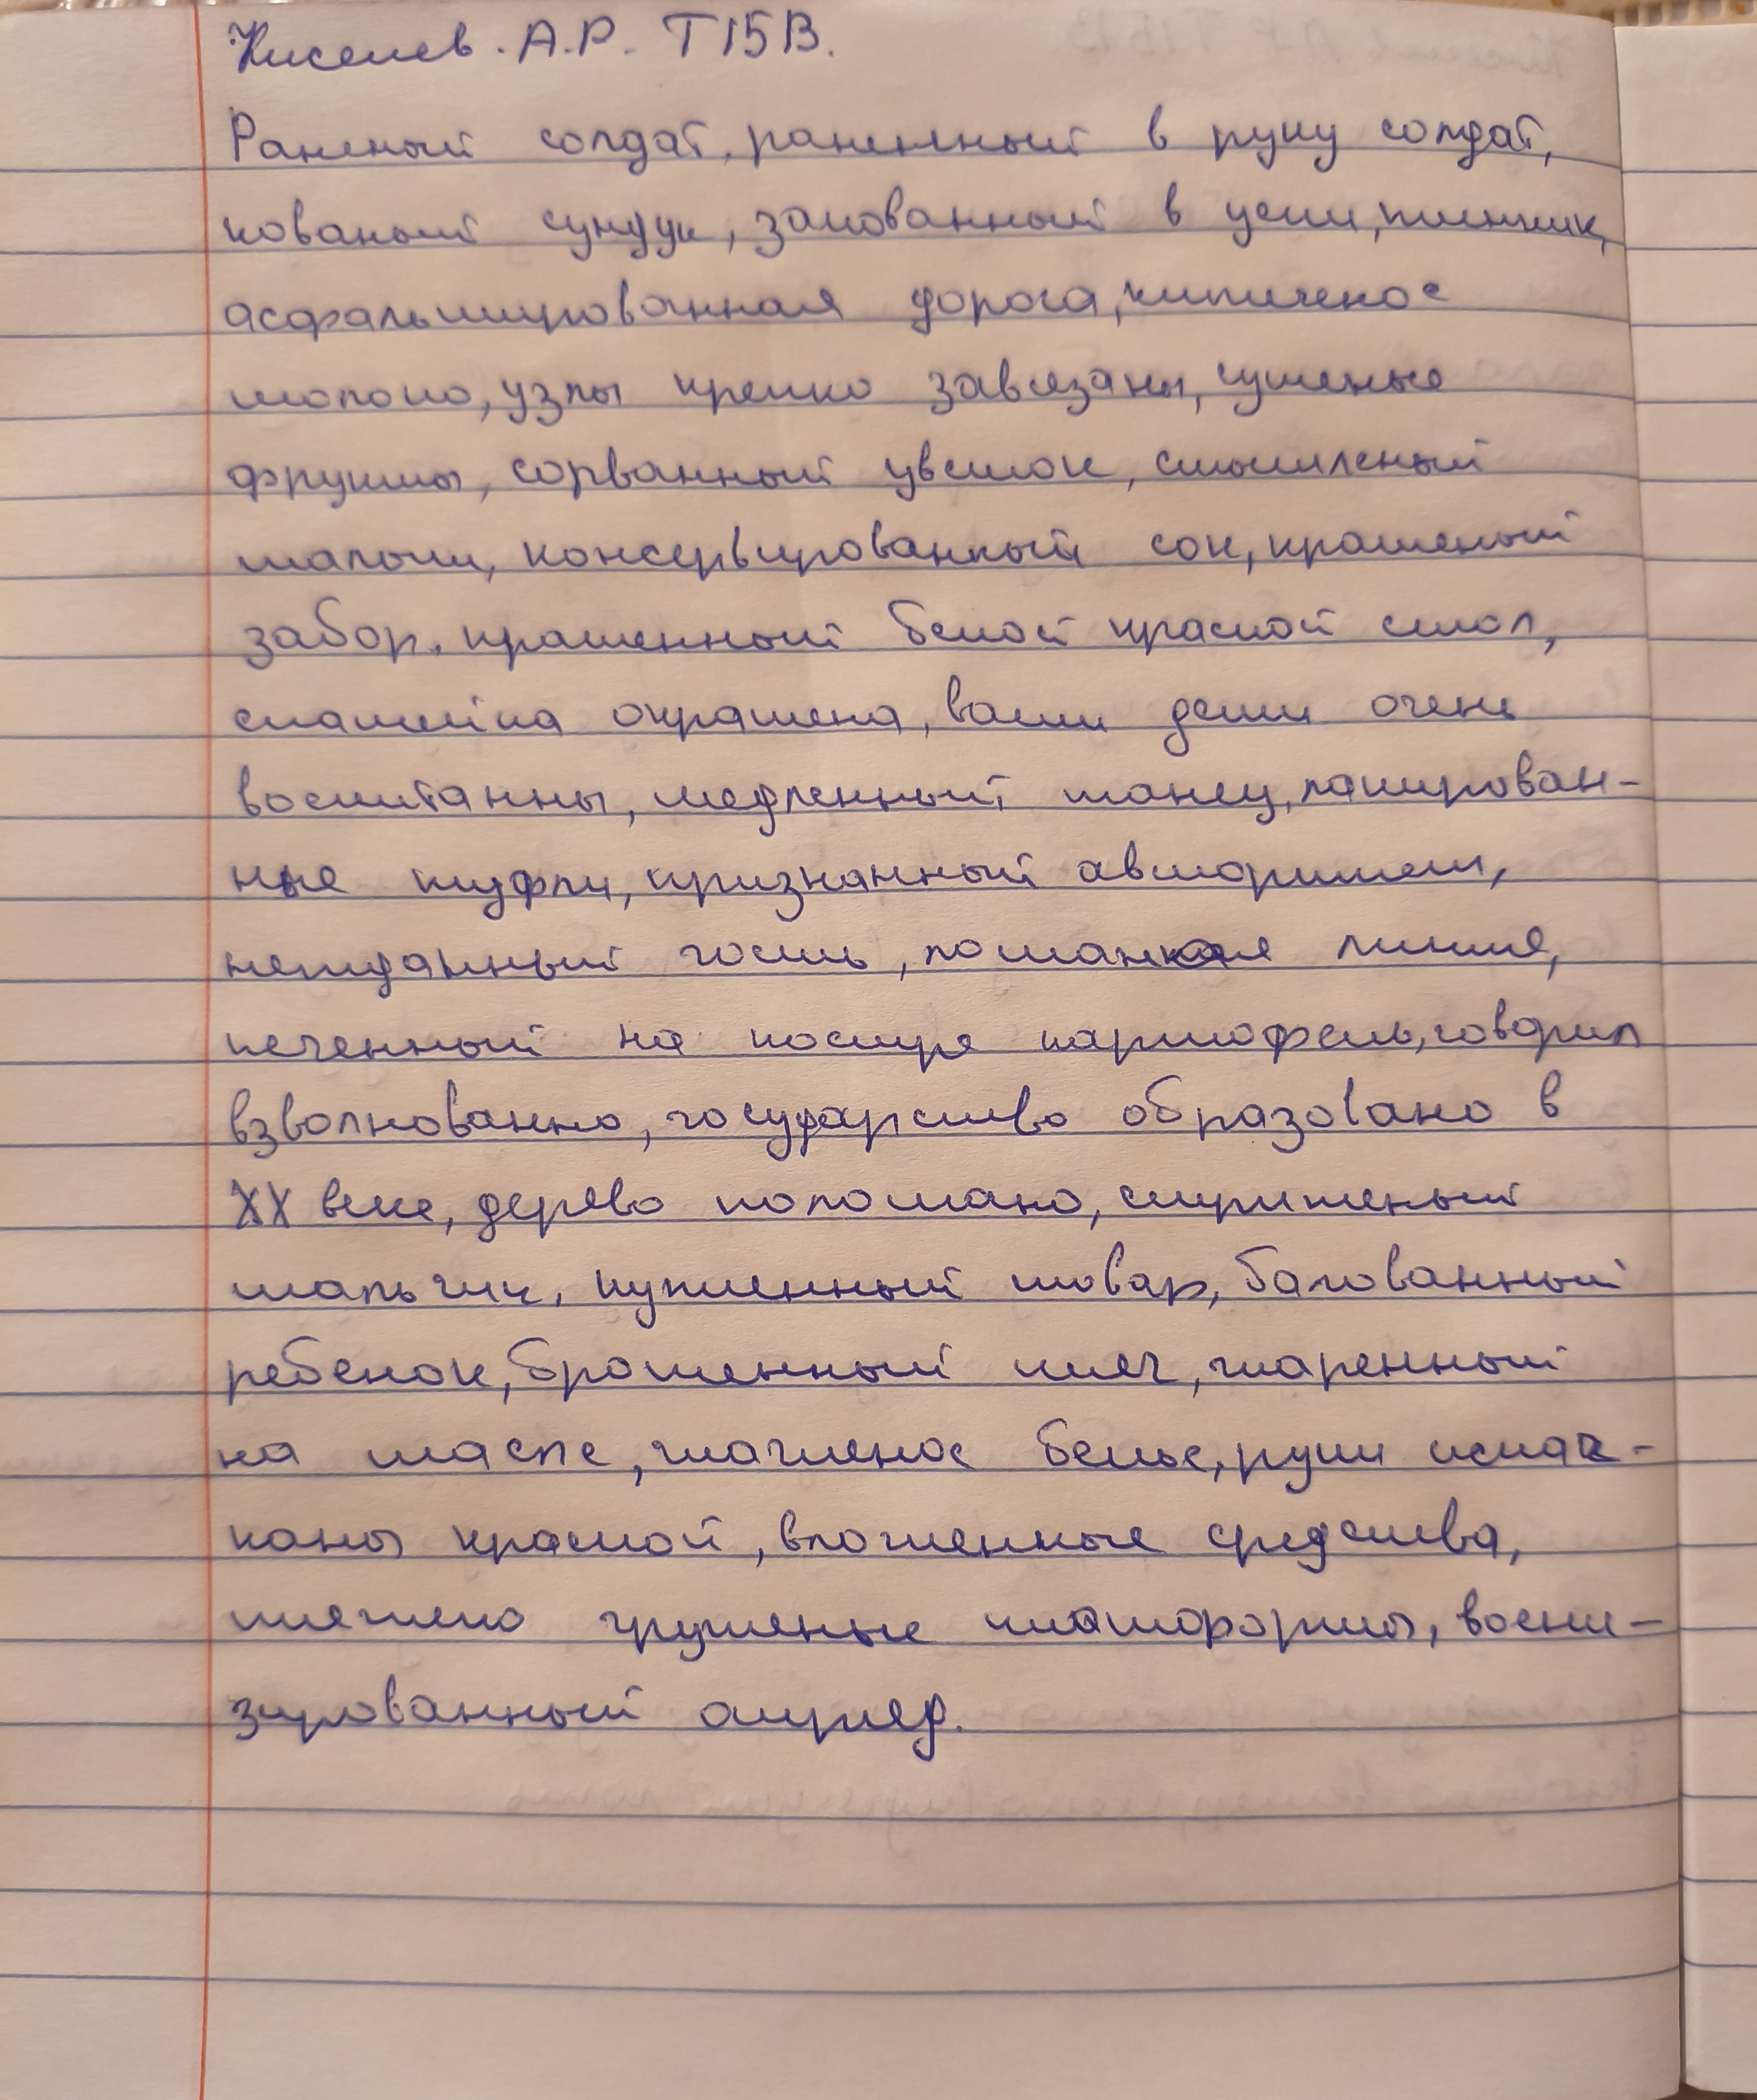 Киселев. А.Р. Т15В.
Раненый солдат, раненный в руку солдат,
кованый сундук, закованный в цепи, пленник,
асфальтированная дорога, кипяченое
молоко, узлы крепко завязаны, сушеные
фрукты, сорванный цветок, смышленый
малыш, консервированный сок, крашеный
забор, крашенный белой краской стол,
скамейка окрашена, ваши дети очень
воспитанны, медленный танец, лакирован-
ные туфли, признанный авторитет,
нежданный гость, ломаная линия,
печенный на костре картофель, говорил
взволнованно, государство образовано в
XX веке, дерево поломано, стриженый
мальчик, купленный товар, балованный
ребенок, брошенный мяч, жаренный
на масле, глаженое белье, руки испач-
каны краской, вложенные средства,
тяжело груженые платформы, воени-
зированный отряд.